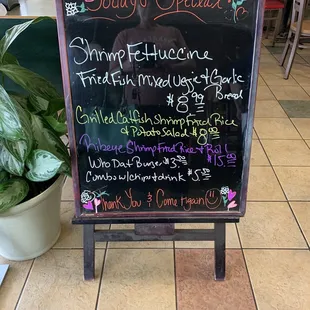 Today's Special
Shrimp Fettuccine
Fried Fish Mixed Veggie & Garlic
$8.99 Bread
Grilled Catfish Shrimp Fried Rice
& Potato Salad $8
Ribeye Shrimp Fried Rice & Roll
$15
Who Dat Burger $3
Combo w/chips & drink $5
Thank You & Come Again!